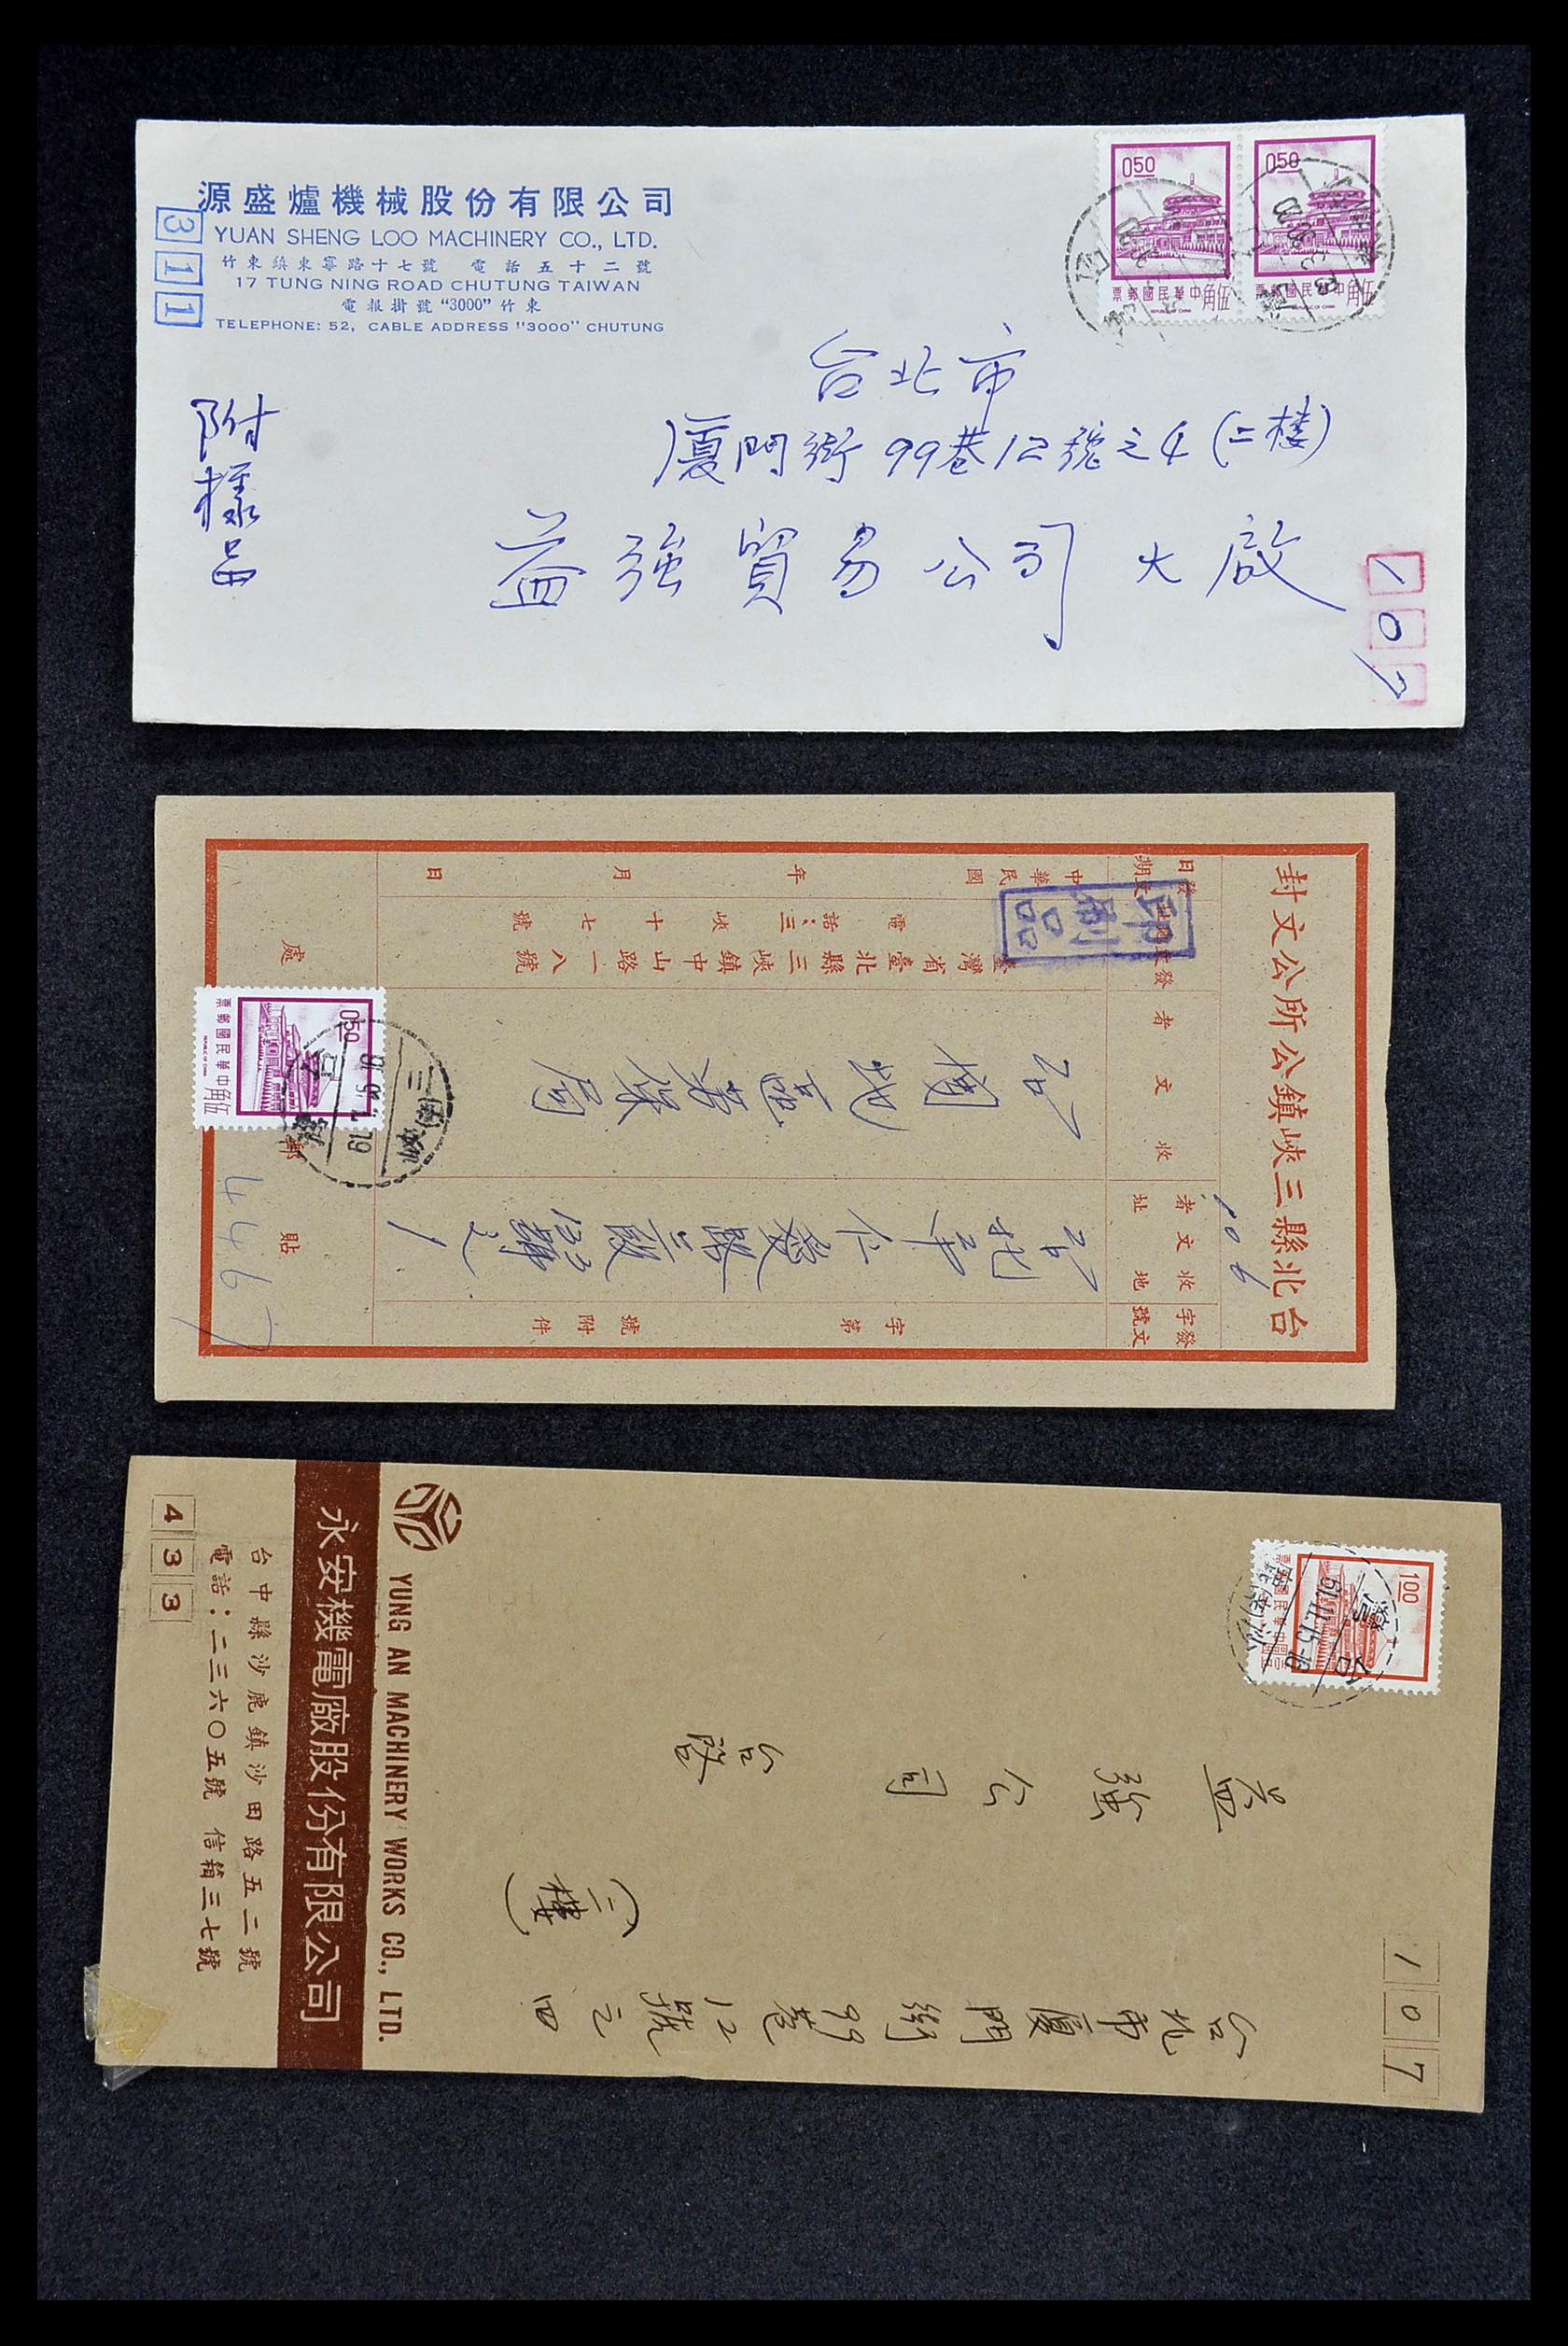 源盛爐機械股份有限公司
YUAN SHENG LOO MACHINERY CO., LTD.
竹東鎮東寧路十七號 電話五十二號
17 TUNG NING ROAD CHUTUNG TAIWAN
電報掛號 "3000" 竹東
TELEPHONE: 52, CABLE ADDRESS "3000" CHUTUNG
311
050
050
伍角中華民國郵票
REPUBLIC OF CHINA
伍角中華民國郵票
REPUBLIC OF CHINA
台北市
厦門街99巷12號之4(二楼)
益強貿易公司大啟
附樣品
107
台北縣三峽鎮公所公文封
106
發文字號
字第 號附件
收文者地址
台北市仁愛路三段
收文者
勞保局
發文
臺灣省臺北縣三峽鎮中山路一八號
電話:三峽十七號
發文日期
中華民國 年 月 日
印刷品
貼郵 處
050
伍角中華民國郵票
REPUBLIC OF CHINA
61
446
107
100
台灣
61.11.15
沙鹿
台北市厦門街99巷12號之四
(二樓)
益強公司
台啟
YUNG AN MACHINERY WORKS CO., LTD.
永安機電廠股份有限公司
台中縣沙鹿鎮沙田路五二號
電話:二三六〇五號 信箱三七號
433